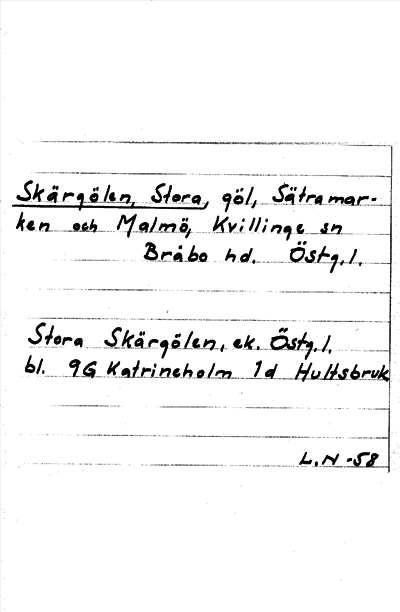 Skärgölen, Stora, göl, Sätramar-
ken och Malmö, Kvillinge sn
Bråbo hd. Östg.l.
Stora Skärgölen, ek. Östg.l.
bl. 9G Katrineholm 1d Hultsbruk
L.N -58